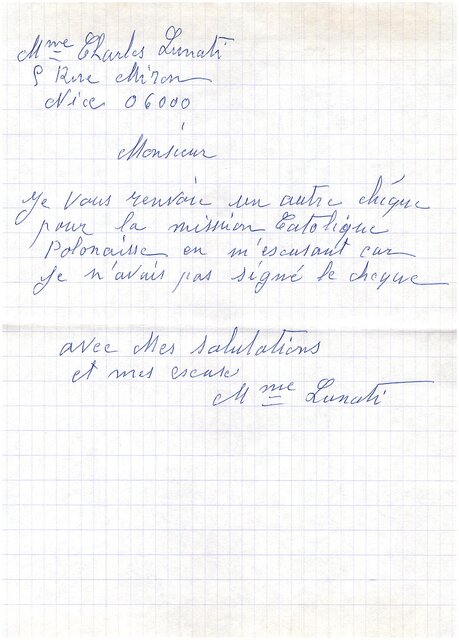 Mme Charles Lunati
5 Rue Miron
Nice 06000
Monsieur
Je vous renvoie un autre chéque
pour la mission Catolique
Polonaisse en m'escusant car
je n'avais pas signé le cheque
avec Mes salutations
et mes escuse
Mme Lunati